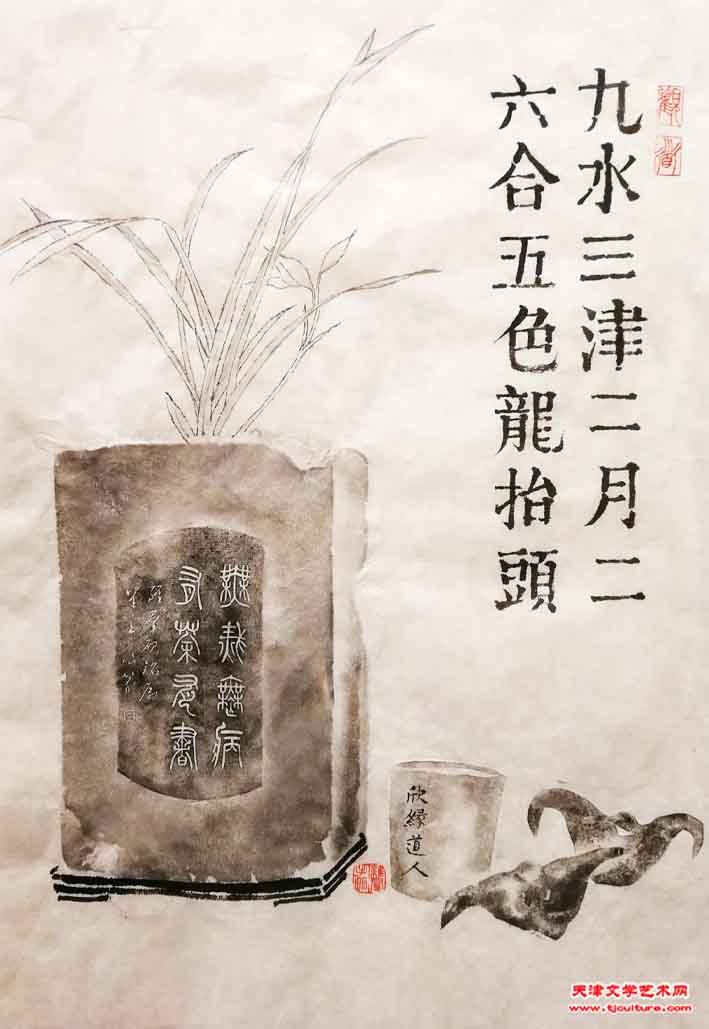 九水三津二月二
六合五色龍抬頭
無烖無病
有茶有書
欣緣道人
天津文学艺术网
www.tjculture.com